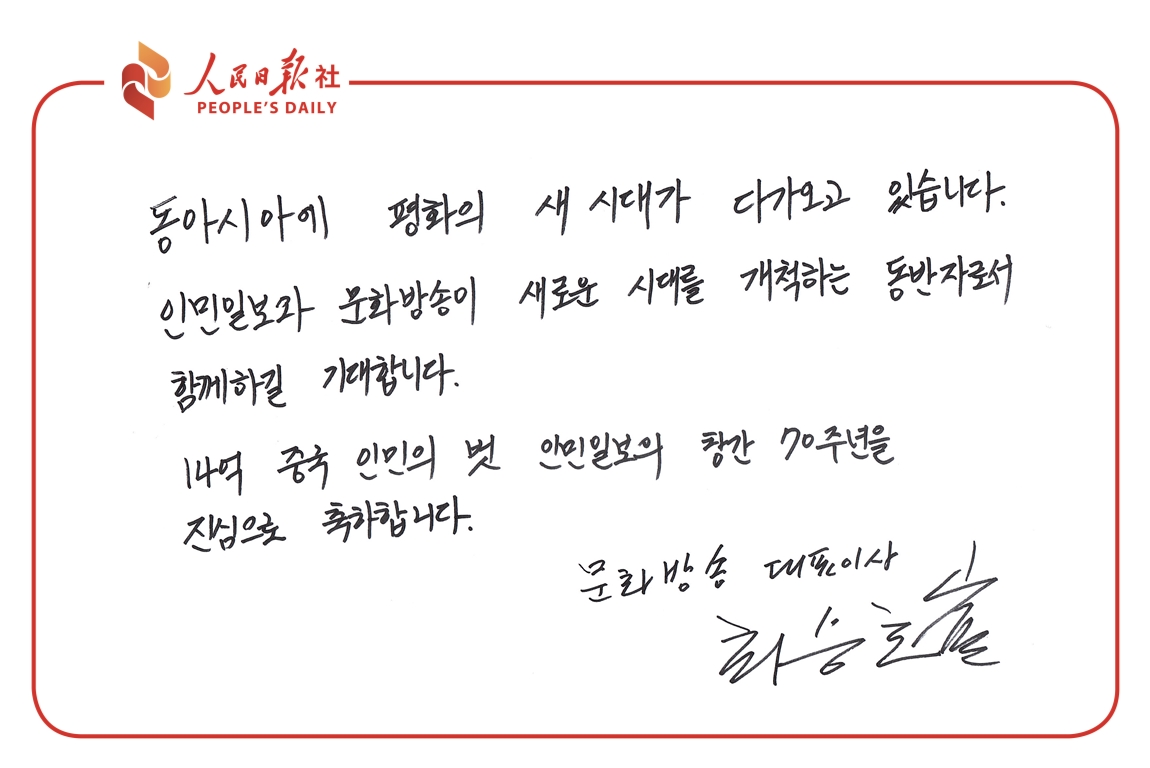 人民日报社
PEOPLE'S DAILY
동아시아에 평화의 새 시대가 다가오고 있습니다.
인민일보와 문화방송이 새로운 시대를 개척하는 동반자로서
함께하길 기대합니다.
14억 중국 인민의 벗 인민일보의 창간 70주년을
진심으로 축하합니다.
문화방송 대표이사
최승호